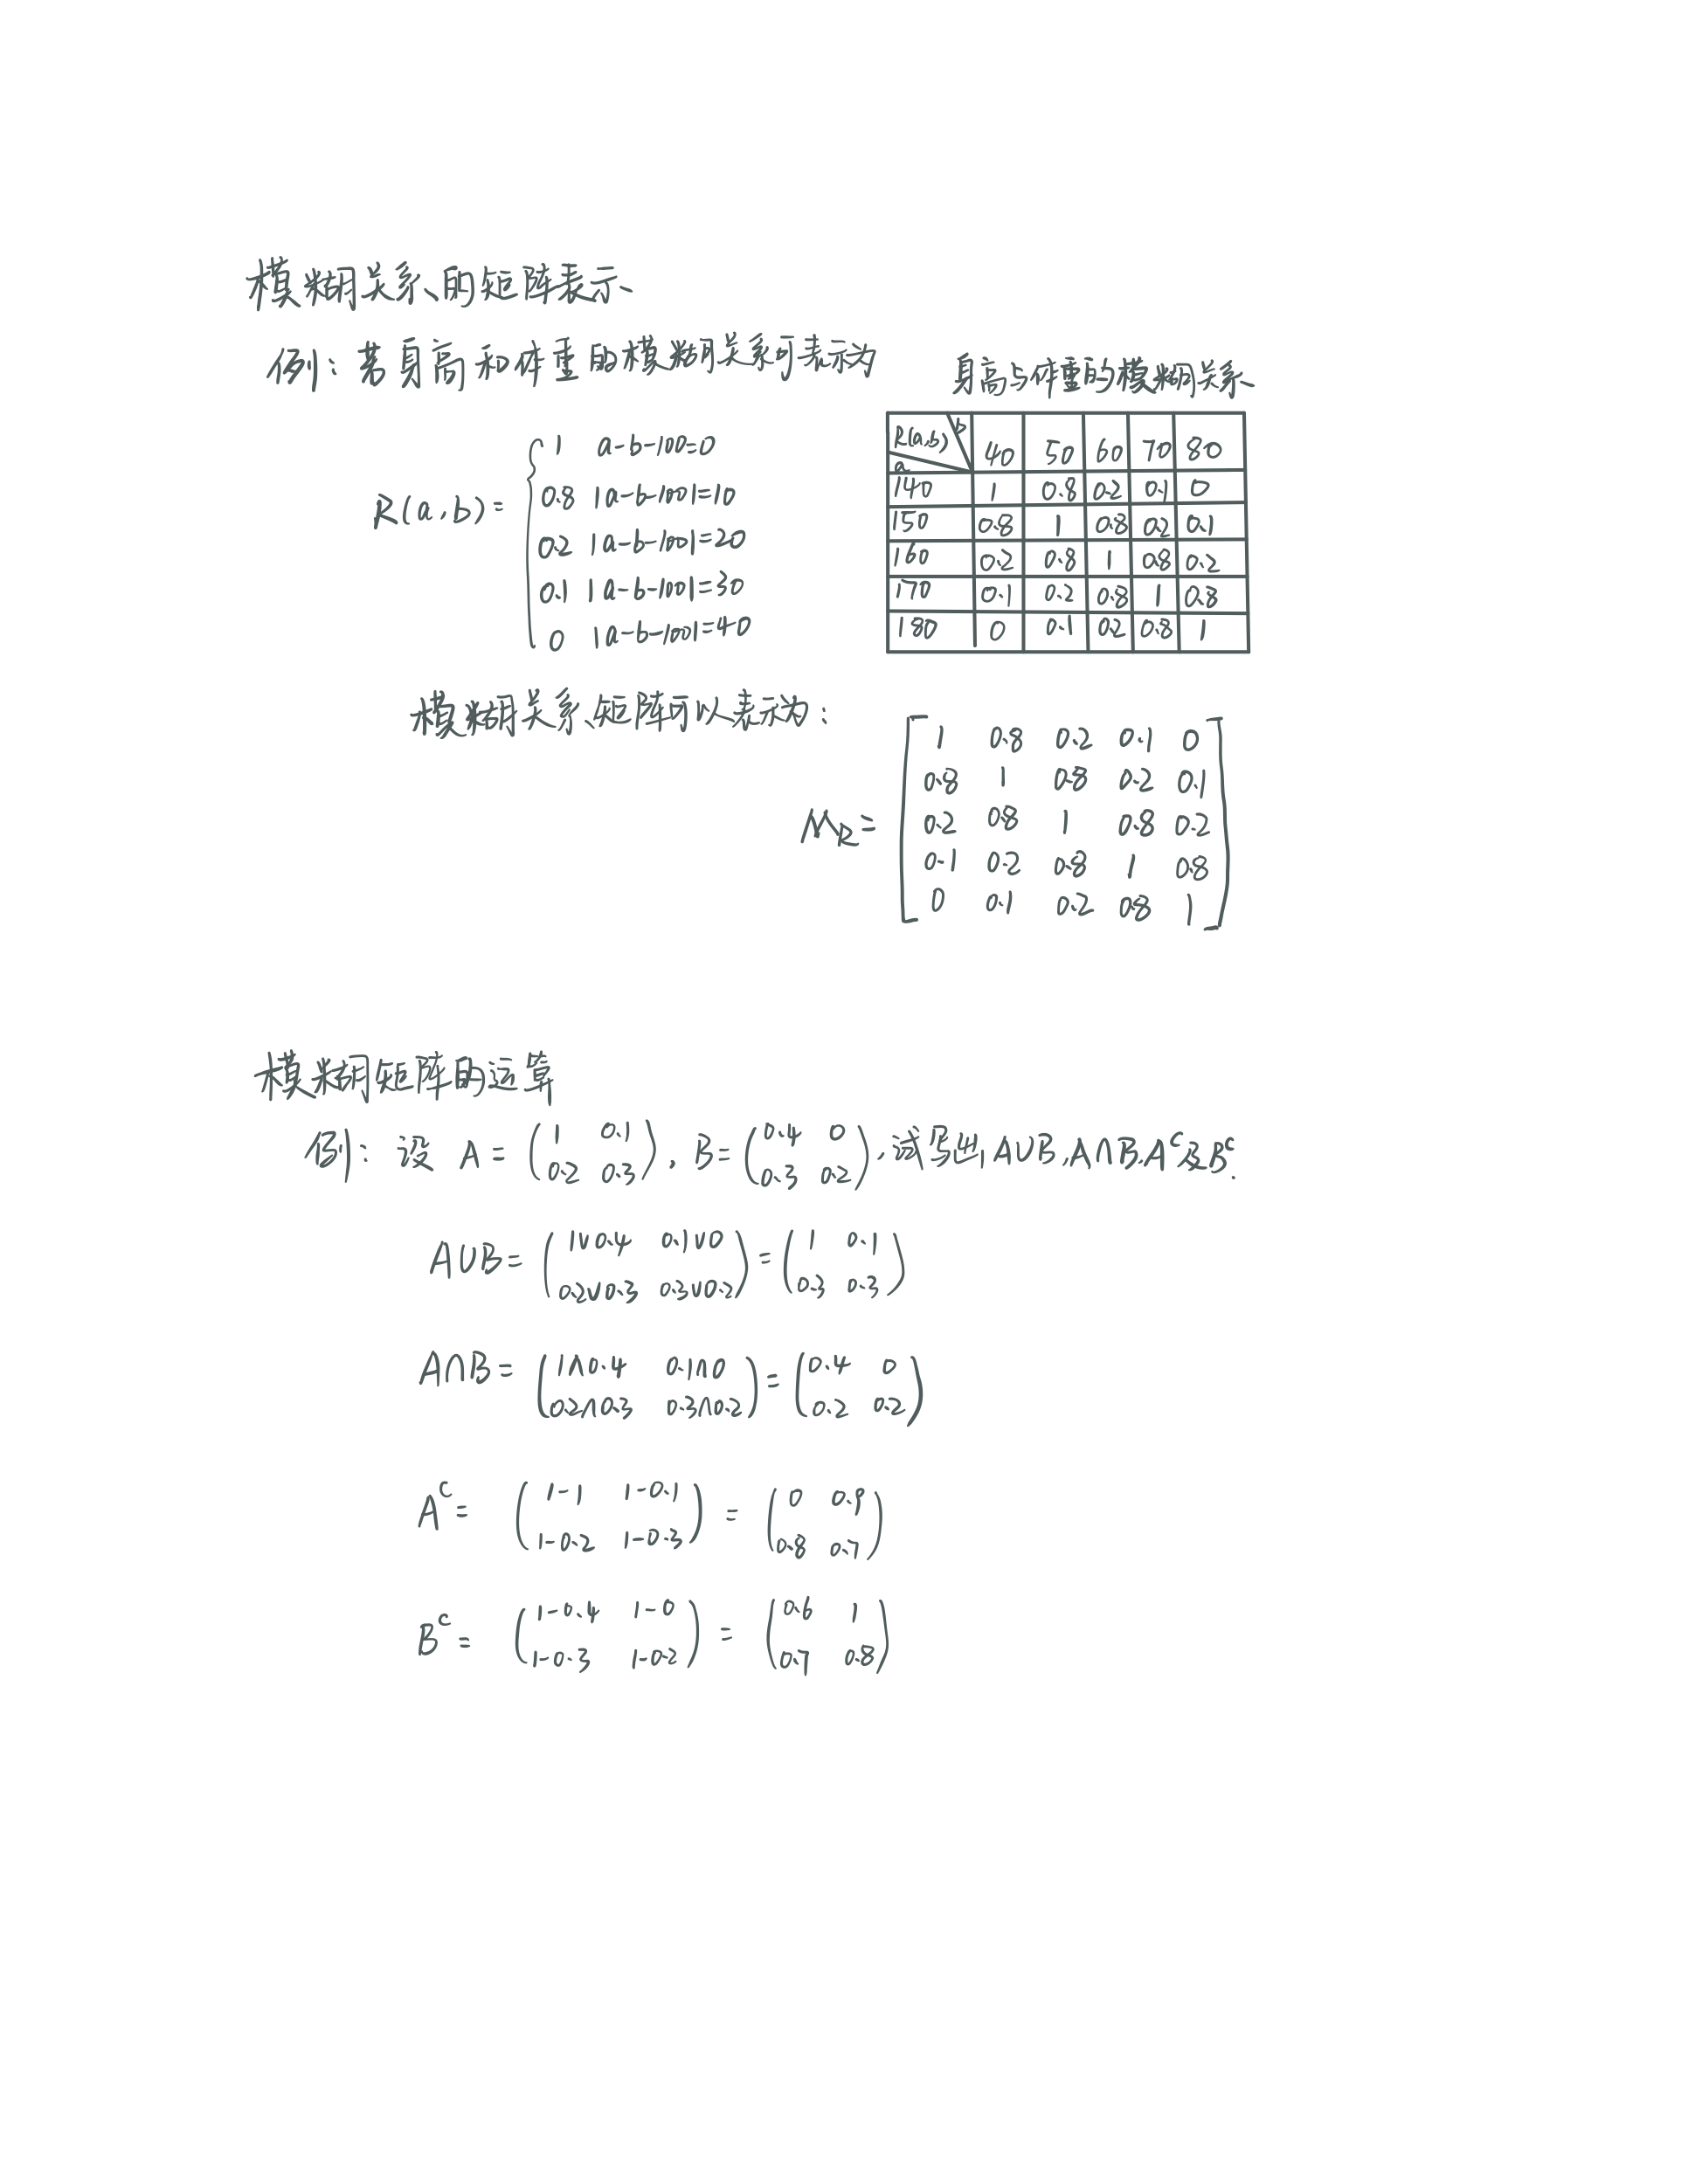 模糊关系的矩阵表示
例：若身高和体重的模糊关系可表示为
R(a,b)=
1 a-b-100=0
0.8 |a-b-100|=10
0.2 |a-b-100|=20
0.1 |a-b-100|=30
0 |a-b-100|=40
身高与体重的模糊关系
R(a,b) b a 40 50 60 70 80
140 1 0.8 0.2 0.1 0
150 0.8 1 0.8 0.2 0.1
160 0.2 0.8 1 0.8 0.2
170 0.1 0.2 0.8 1 0.8
180 0 0.1 0.2 0.8 1
模糊关系矩阵可以表示为：
M_R=
1 0.8 0.2 0.1 0
0.8 1 0.8 0.2 0.1
0.2 0.8 1 0.8 0.2
0.1 0.2 0.8 1 0.8
0 0.1 0.2 0.8 1
模糊矩阵的运算
例：设 A=(1 0.1
0.2 0.3), B=(0.4 0
0.3 0.2),试写出A∪B,A∩B,A^c及B^c.
A∪B=(1∨0.4 0.1∨0
0.2∨0.3 0.3∨0.2)=(1 0.1
0.3 0.3)
A∩B=(1∧0.4 0.1∩0
0.2∩0.3 0.3∩0.2)=(0.4 0
0.2 0.2)
A^c=(1-1 1-0.1
1-0.2 1-0.3)=(0 0.9
0.8 0.7)
B^c=(1-0.4 1-0
1-0.3 1-0.2)=(0.6 1
0.7 0.8)